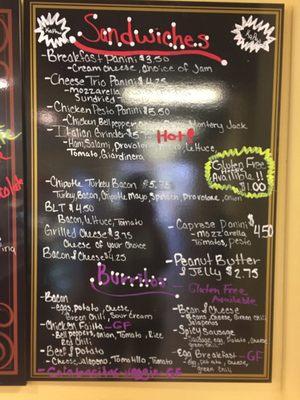 Ka Pow!
Sandwiches
Ka Pow!
-Breakfast Panini $3.50
-Cream cheese, choice of Jam
-Cheese Trio Panini $4.75
-Mozzarella
Sundried
-Chicken Pesto Panini $5.50
-Chicken, Bell pepper, Monterey Jack
-Italian Grinder $5 Hot!
-Ham, Salami, provolone, lettuce,
Tomato, Giardinera
Gluten Free
Available!!
$1.00
-Chipotle Turkey Bacon $5.75
-Turkey, Bacon, Chipotle Mayo, Spinach, Provolone, onion
BLT $4.50
Bacon, lettuce, Tomato
Grilled Cheese $3.75
Cheese of your Choice
Bacon & Cheese $4.25
-Caprese Panini $4.50
-Mozzarella
Tomatos, Pesto
-Peanut Butter
& Jelly $2.75
Burritos
-Gluten Free
Available
-Bacon
-eggs, potato, cheese,
Green Chili, Sour cream
-Chicken Fajita -GF
-Bell peppers, onion, Tomato, Rice
Red Chili
-Beef & Potato
-Cheese, Jalapeno, Tomatillo, Tomato
-Calabacitas veggie-GF
-Bean & Cheese
-Beans, Cheese, Green Chili
Jalapeños
-Spicy Sausage
-Sausage, egg, Potato, Cheese
green chili
-Egg Breakfast -GF
-egg, Potato, cheese,
green chili